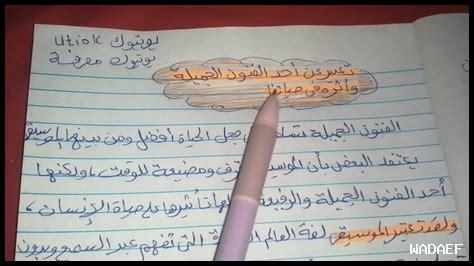 يوتيوب Utiok
يوتيوب معرفة
تعبير عن أحد الفنون الجميلة
وأثره في حياتنا
الفنون الجميلة تساهم في جعل الحياة أفضل ومن بينها الموسيقى
يعتقد البعض بأن الموسيقى ترف ومضيعة للوقت، ولكنها
أحد الفنون الجميلة والرفيعة ولها تأثيرها على حياة الإنسان،
ولقد تعتبر الموسيقى لغة العالم التي تفهم عبر السمع وبدون
WADAEF